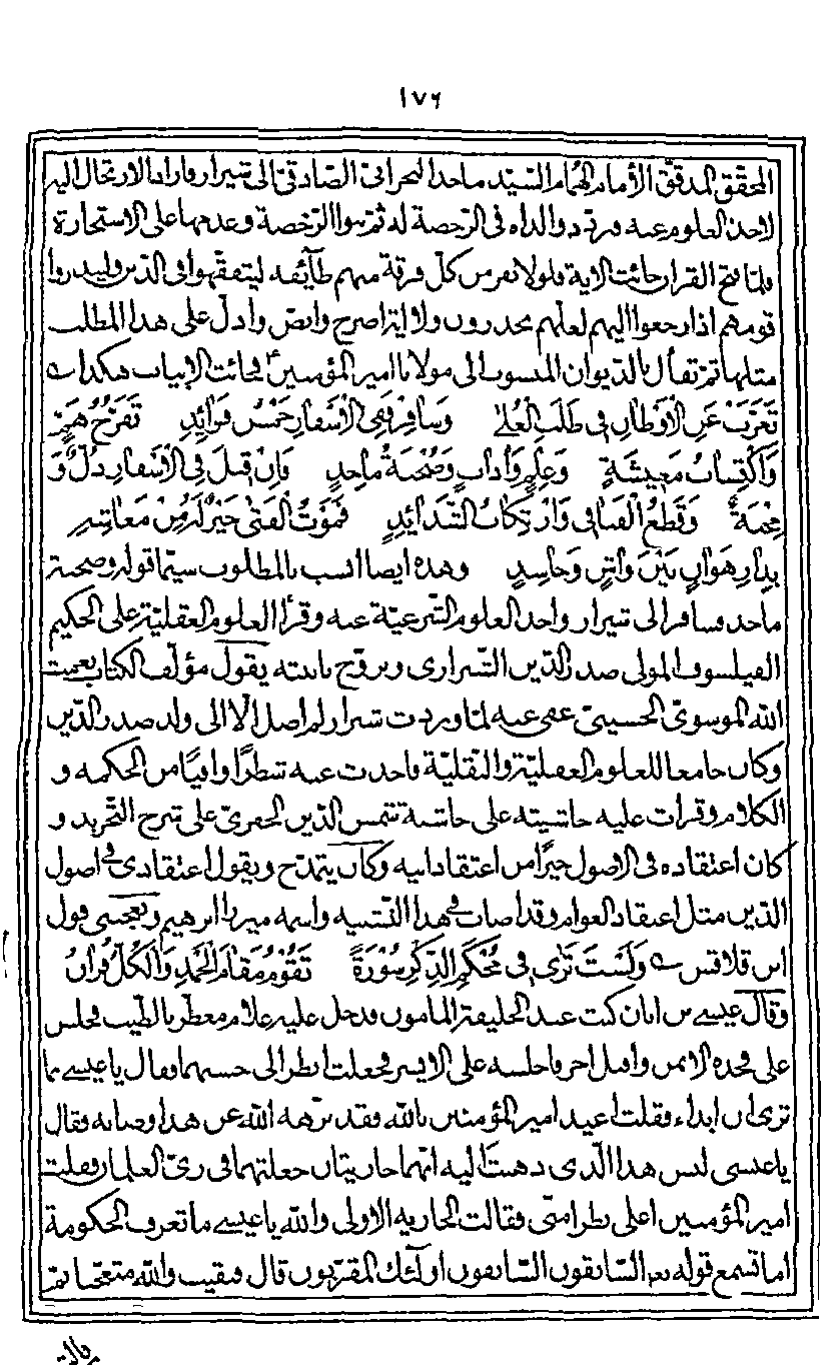 ١٧٦
المحقق المدقق الأمام الهمام السيد ماجد البحراني الصادقي الى شيراز فاراد الارتحال اليه
لاخذ العلوم عنه فتردد والداه في الرخصة له ثم بنوا الرخصة وعدمها على الاستخارة
فلما فتح القران جائت الاية فلولا نفر من كل فرقة منهم طآئفه ليتفقهوا في الدين ولينذروا
قومهم اذا رجعوا اليهم لعلهم يحذرون ولا اية اصرح وانص وادل على هذا المطلب
مثلها ثم تفأل بالديوان المنسوب الى مولانا امير المؤمنين ع فجائت الابيات هكذا
تَغَرَّبْ عَنِ الْاَوْطَانِ فِى طَلَبِ الْعُلىٰ وَسَافِرْ فَفِى الْاَسْفَارِ خَمْسُ فَوَائِدِ تَفَرُّحُ هَمٍّ
وَاكْتِسَابُ مَعِيشَةٍ وَعِلْمٌ وَآدَابٌ وَصُحْبَةُ مَاجِدٍ فَاِنْ قِيلَ فِى الْاَسْفَارِ ذُلٌّ وَ
مِحْنَةٌ وَقَطْعُ الْفَيَافِى وَارْتِكَابُ الشَّدَائِدِ فَمَوْتُ الْفَتىٰ خَيْرٌ لَهُ مِنْ مَعَاشِهِ
بِدَارِ هَوَانٍ بَيْنَ وَاشٍ وَحَاسِدٍ وهذه ايضا انسب بالمطلوب سيما قوله وصحبة
ماجد فسافر الى شيراز واخذ العلوم الشرعيّة عنه وقرأ العلوم العقلية على الحكيم
الفيلسوف المولى صدر الدين الشيرازى وتزوج بابنته يقول مؤلف الكتاب نعمت
الله الموسوى الحسينى عفى عنه لما وردت شيراز لم اصل الا الى ولد صدر الدين
وكان جامعا للعلوم العقلية والنقلية فاخذت عنه شطرًا وافيًا من الحكمه و
الكلام وقرات عليه حاشيته على حاشية شمس الدين الخفرى على شرح التجريد و
كان اعتقاده في الاصول خيرًا من اعتقاد ابيه وكان يتمدح ويقول اعتقادى في اصول
الدين مثل اعتقاد العوام وقد اصاب في هذا التشبيه واسمه ميرزا ابرهيم ويعجبنى قول
ابن قلاقس وَلَسْتَ تَرٰى فِى مُحْكَمِ الذِّكْرِ سُوْرَةً تَقُوْمُ مَقَامَ الْحَمْدِ وَالْكُلُّ قُرْاٰنُ
وقال عيسى بن ابان كنت عند الخليفة المامون فدخل عليه غلام معطر بالطيب فجلس
على فخذه الايمن واقبل اخر فاجلسه على الايسر فجعلت انظر الى حسنهما فقال يا عيسى ما
ترى ان ابداء فقلت اعيذ امير المؤمنين بالله فقد نزهه الله عن هذا وصانه فقال
يا عيسى ليس هذا الّذى ذهبت اليه انهما جاريتان جعلتهما في زىّ الغلمان فقلت
امير المؤمنين اعلى نظرا منّى فقالت الجاريه الاولى والله يا عيسى ما تعرف الحكومة
اما تسمع قوله تعم السّابقون السّابقون اولٓئك المقربون قال فبقيت والله متعجبا ثم